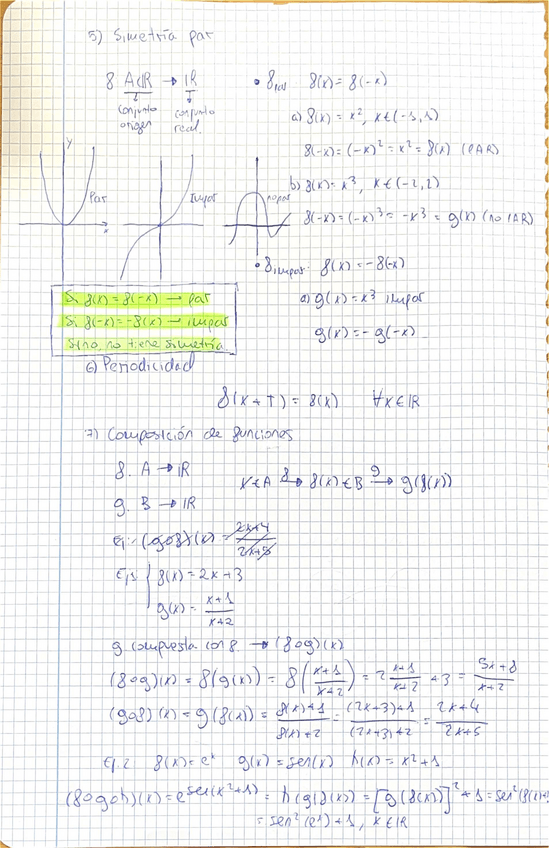 5) Simetría par
f A⊂ℝ → ℝ
conjunto origen
conjunto real
• f par f(x) = f(-x)
a) f(x) = x², x∈(-1,1)
f(-x) = (-x)² = x² = f(x) (PAR)
b) f(x) = x³, x∈(-2,2)
f(-x) = (-x)³ = -x³ = g(x) (no PAR)
y
x
Par
Impar
no par
• f impar f(x) = -f(-x)
a) g(x) = x³ impar
g(x) = -g(-x)
Si f(x) = f(-x) → par
Si f(-x) = -f(x) → impar
Si no, no tiene simetría
6) Periodicidad
f(x+T) = f(x) ∀x∈ℝ
7) Composición de funciones
f. A → ℝ
g. B → ℝ
x∈A →f f(x)∈B →g g(f(x))
Ej. (gof)(x) = 2x+4/2x+5
Ej1 { f(x) = 2x+3
g(x) = x+1/x+2
g compuesta con f. → (fog)(x)
(fog)(x) = f(g(x)) = f(x+1/x+2) = 2 x+1/x+2 + 3 = 5x+8/x+2
(gof)(x) = g(f(x)) = f(x)+1/f(x)+2 = (2x+3)+1/(2x+3)+2 = 2x+4/2x+5
Ej.2 f(x) = eˣ g(x) = sen(x) h(x) = x²+1
(fogoh)(x) = e^sen(x²+1) = h(g(f(x))) = [g(f(x))]² + 1 = sen²(f(x)+
= sen²(eˣ)+1, x∈ℝ